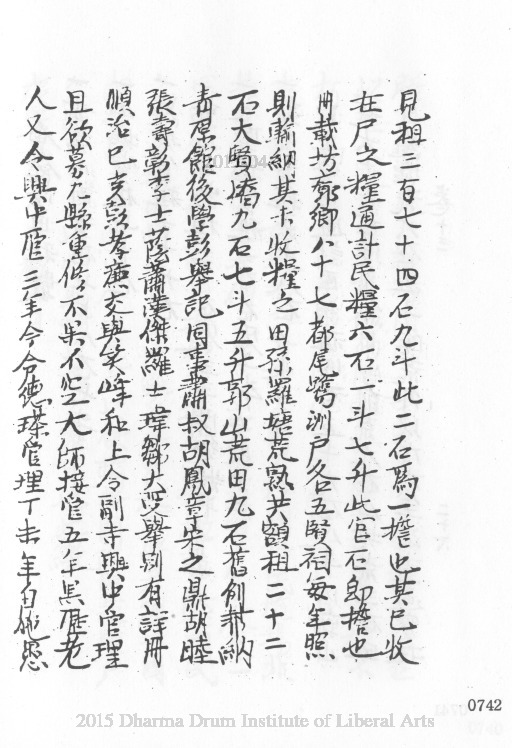 見租三百七十四石九斗此二石為一擔也其已收
在尸之糧通計民糧六石一斗七升此官石即擔也
冊載坊廓鄉八十七都尾鷺洲戶名五賢祠每年照
則輸納其未收糧之田孫羅塘荒熟共額租二十二
石大賢橋九石七斗五升郭山荒田九石舊例輸納
青原館後學彭舉記同事蕭叔胡鳳章宋之鼎胡睦
張壽彭李士蔭蕭漢傑羅士瑋鄒大受舉別有註冊
順治己亥彭孝廉文與笑峰和上令副寺興中管理
且欲募九縣重修不果不空大師接管五年黑雁老
人又令興中雁三年今令德琛管理丁未年自施愚
0742
2015 Dharma Drum Institute of Liberal Arts